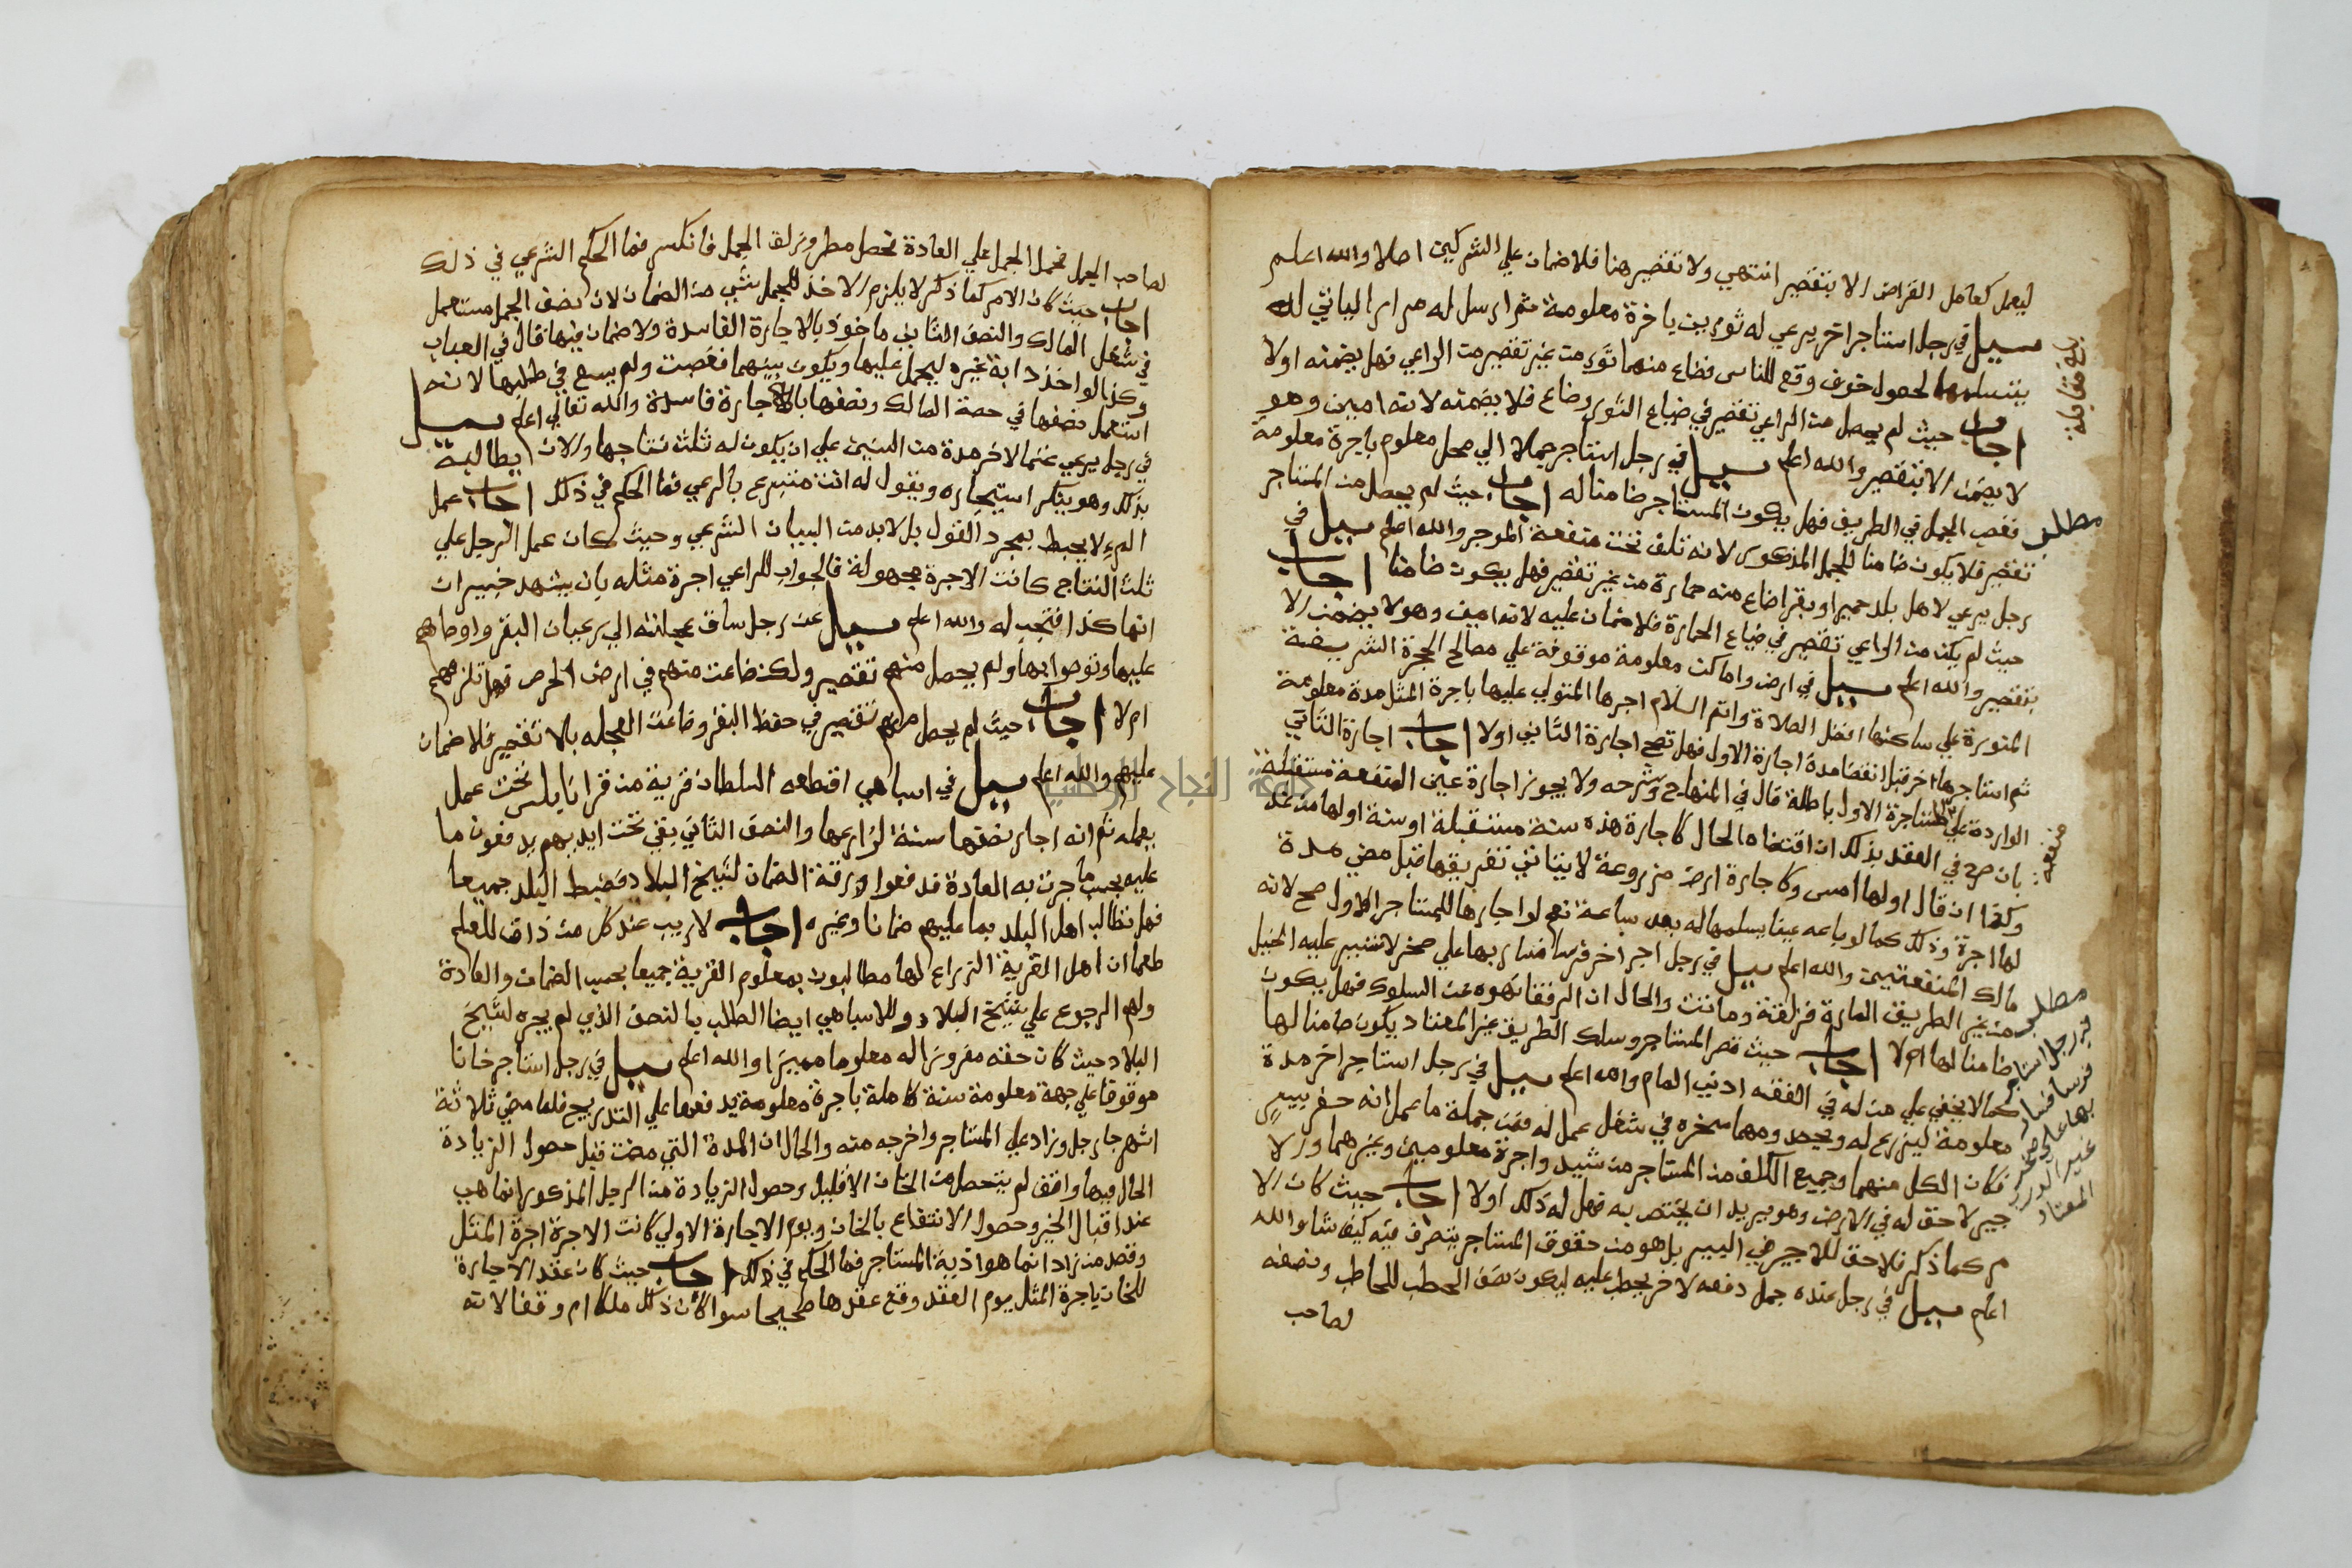 ليعمل كعامل القراض الا بتقصير انتهي ولا تقصير هنا فلا ضمان علي الشركين اصلا والله اعلم
سيل في رجل استاجر اخر يرعي له ثورين باخرة معلومة ثم ارسل له مرارا لياتي له
بتسلمها لحصول خوف وقع للناس فضاع منهما ثور من غير تقصير من الراعي فهل يضمنه اولا
اجاب حيث لم يحصل من الراعي تقصير في ضياع الثور وضاع فلا يضمنه لانه امين وهو
لا يضمن الا بتقصير والله اعلم سيل في رجل استاجر جملا الي محل معلوم باجرة معلومة
فغصب الجمل في الطريق فهل يكون المستاجر ضامنا له اجاب حيث لم يحصل من المستاجر
تقصير فلا يكون ضامنا للجمل المذكور لانه تلف تحت منفعة الموجر والله اعلم سيل في
رجل يرعي لاهل بلد حميرا وبقرا ضاع منه حمارة من غير تقصير فهل يكون ضامنا اجاب
حيث لم يكن من الراعي تقصير في ضياع الحمارة فلا ضمان عليه لانه امين وهو لا يضمن الا
بتقصير والله اعلم سيل في ارض واماكن معلومة موقوفة علي مصالح الحجرة الشريفة
المنورة علي ساكنها افضل الصلاة واتم السلام اجرها المتولي عليها باجرة المثل مدة معلومة
ثم استاجرها اخر قبل انقضا مدة اجارة الاول فهل تصح اجارة الثاني اولا اجاب اجارة الثاني
الواردة علي مستاجرة الاول باطلة قال في المنهاج وشرحه ولا يجوز اجارة عين المنفعة مستقبلة
بان صرح في العقد بذلك او اقتضاه الحال كاجارة هذه سنة مستقبلة او سنة اولها من غد
وكذا ان قال اولها امس وكاجارة ارض مزروعة لا يتاتي تفريغها قبل مضي مدة
لها اجرة وذلك كما لو باعه عينا يسلمها له بعد ساعة نعم لو اجارها للمستاجر الاول صح لانه
مالك المنفعتين والله اعلم سيل في رجل اجر اخر فرسا فسار بها علي صخر لا تسير عليه الخيل
من غير الطريق المارة فزلقت وماتت والحال ان الرفقا نهوه عن السلوك فهل يكون
ضامنا لها ام لا اجاب حيث قصر المستاجر وسلك الطريق غير المعتاد يكون ضامنا لها
كما لا يخفي علي من له في الفقه ادني المام والله اعلم سيل في رجل استاجر اخر مدة
معلومة ليزرع له ويحصد ومهما سخره في شغل عمل له فمن جملة ما عمل انه حفر بير
فكان الكل منهما وجميع الكلف من المستاجر من شيد واجرة معلومين وغيرهما ولا
جير لا حق له في الارض وهو يريد ان يختص به فهل له ذلك اولا اجاب حيث كان الا
مر كما ذكر فلا حق للاجير في البير بل هو من حقوق المستاجر يتصرف فيه كيف شا والله
اعلم سيل في رجل عنده جمل دفعه لاخر يحطب عليه ليكون نصف الحطب للحاطب ونصفه
لصاحب
بلغ مقابلة
مطلب
منفعة
مطلب
في رجل استاجر
فرسا فسار
بها علي صخر
غير الدرب
المعتاد
لصاحب الجمل فحمل الجمل علي العادة فحصل مطر وزلق الجمل فانكسر فما الحكم الشرعي في ذلك
اجاب حيث كان الامر كما ذكر لا يلزم الاخذ للجمل شي من الضمان لان نصف الجمل مستعمل
في شغل المالك والنصف الثاني ماخوذ بالاجارة الفاسدة ولا ضمان فيها قال في العباب
وكذا لو اخذ دابة غيره ليحمل عليها ويكون بينهما فغصبت ولم يسع في طلبها لانه
استعمل نصفها في حصة المالك ونصفها بالاجارة فاسدة والله تعالي اعلم سيل
في رجل يرعي غنما لاخر مدة من السنين علي ان يكون له ثلث نتاجها والان يطالبه
بذلك وهو ينكر استيجاره ويقول له انت متبرع بالرعي فما الحكم في ذلك اجاب عمل
المرء لا يحبط بمجرد القول بل لا بد من البيان الشرعي وحيث كان عمل الرجل علي
ثلث النتاج كانت الاجرة مجهولة فالجواب للراعي اجرة مثله بان يشهد خبيران
انها كذا فتجب له والله اعلم سيل عن رجل ساق عجلته الي رعيان البقر واوصاهم
عليها وتوصوا بها ولم يحصل منهم تقصير ولكن ضاعت منهم في ارض الحرص فهل تلزمهم
ام لا اجاب حيث لم يحصل منهم تقصير في حفظ البقر وضاعت العجله بلا تقصير فلا ضمان
عليهم والله اعلم سيل في اسباهي اقطعه السلطان قرية من قرا نابلس تحت عمل
بعمله ثم انه اجار نصفها سنة لزارعها والنصف الثاني بقي تحت ايديهم يدفعون ما
عليه بحسب ما جرت به العادة فدفعوا ورقة الضمان لشيخ البلاد فضبط البلد جميعا
فهل تطالب اهل البلد بما عليهم ضمانا وغيره اجاب لا ريب عند كل من ذاق للعلم
طعما ان اهل القرية الزراع لها مطالبون بمعلوم القرية جميعا بحسب الضمان والعادة
ولهم الرجوع علي شيخ البلاد وللاسباهي ايضا الطلب بالنصف الذي لم يجره لشيخ
البلاد حيث كان حقه مفروزا له معلوما مميزا والله اعلم سيل في رجل استاجر خانا
موقوفا علي جهة معلومة سنة كاملة باجرة معلومة يدفعها علي التدريج فلما مضي ثلاثة
اشهر جا رجل وزاد علي المستاجر واخرجه منه والحال ان المدة التي مضت قبل حصول الزيادة
الحال فيها واقف لم يتحصل من الخان الا قليل وحصول الزيادة من الرجل المذكور انما هي
عند اقبال الخير وحصول الانتفاع بالخان ويوم الاجارة الاولي كانت الاجرة اجرة المثل
وقصد من زاد انما هو اذية المستاجر فما الحكم في ذلك اجاب حيث كان عقد الاجارة
للخان باجرة المثل يوم العقد وقع عقدها صحيحا سوا كان ذلك ملكا ام وقفا لانه
جامعة النجاح الوطنية